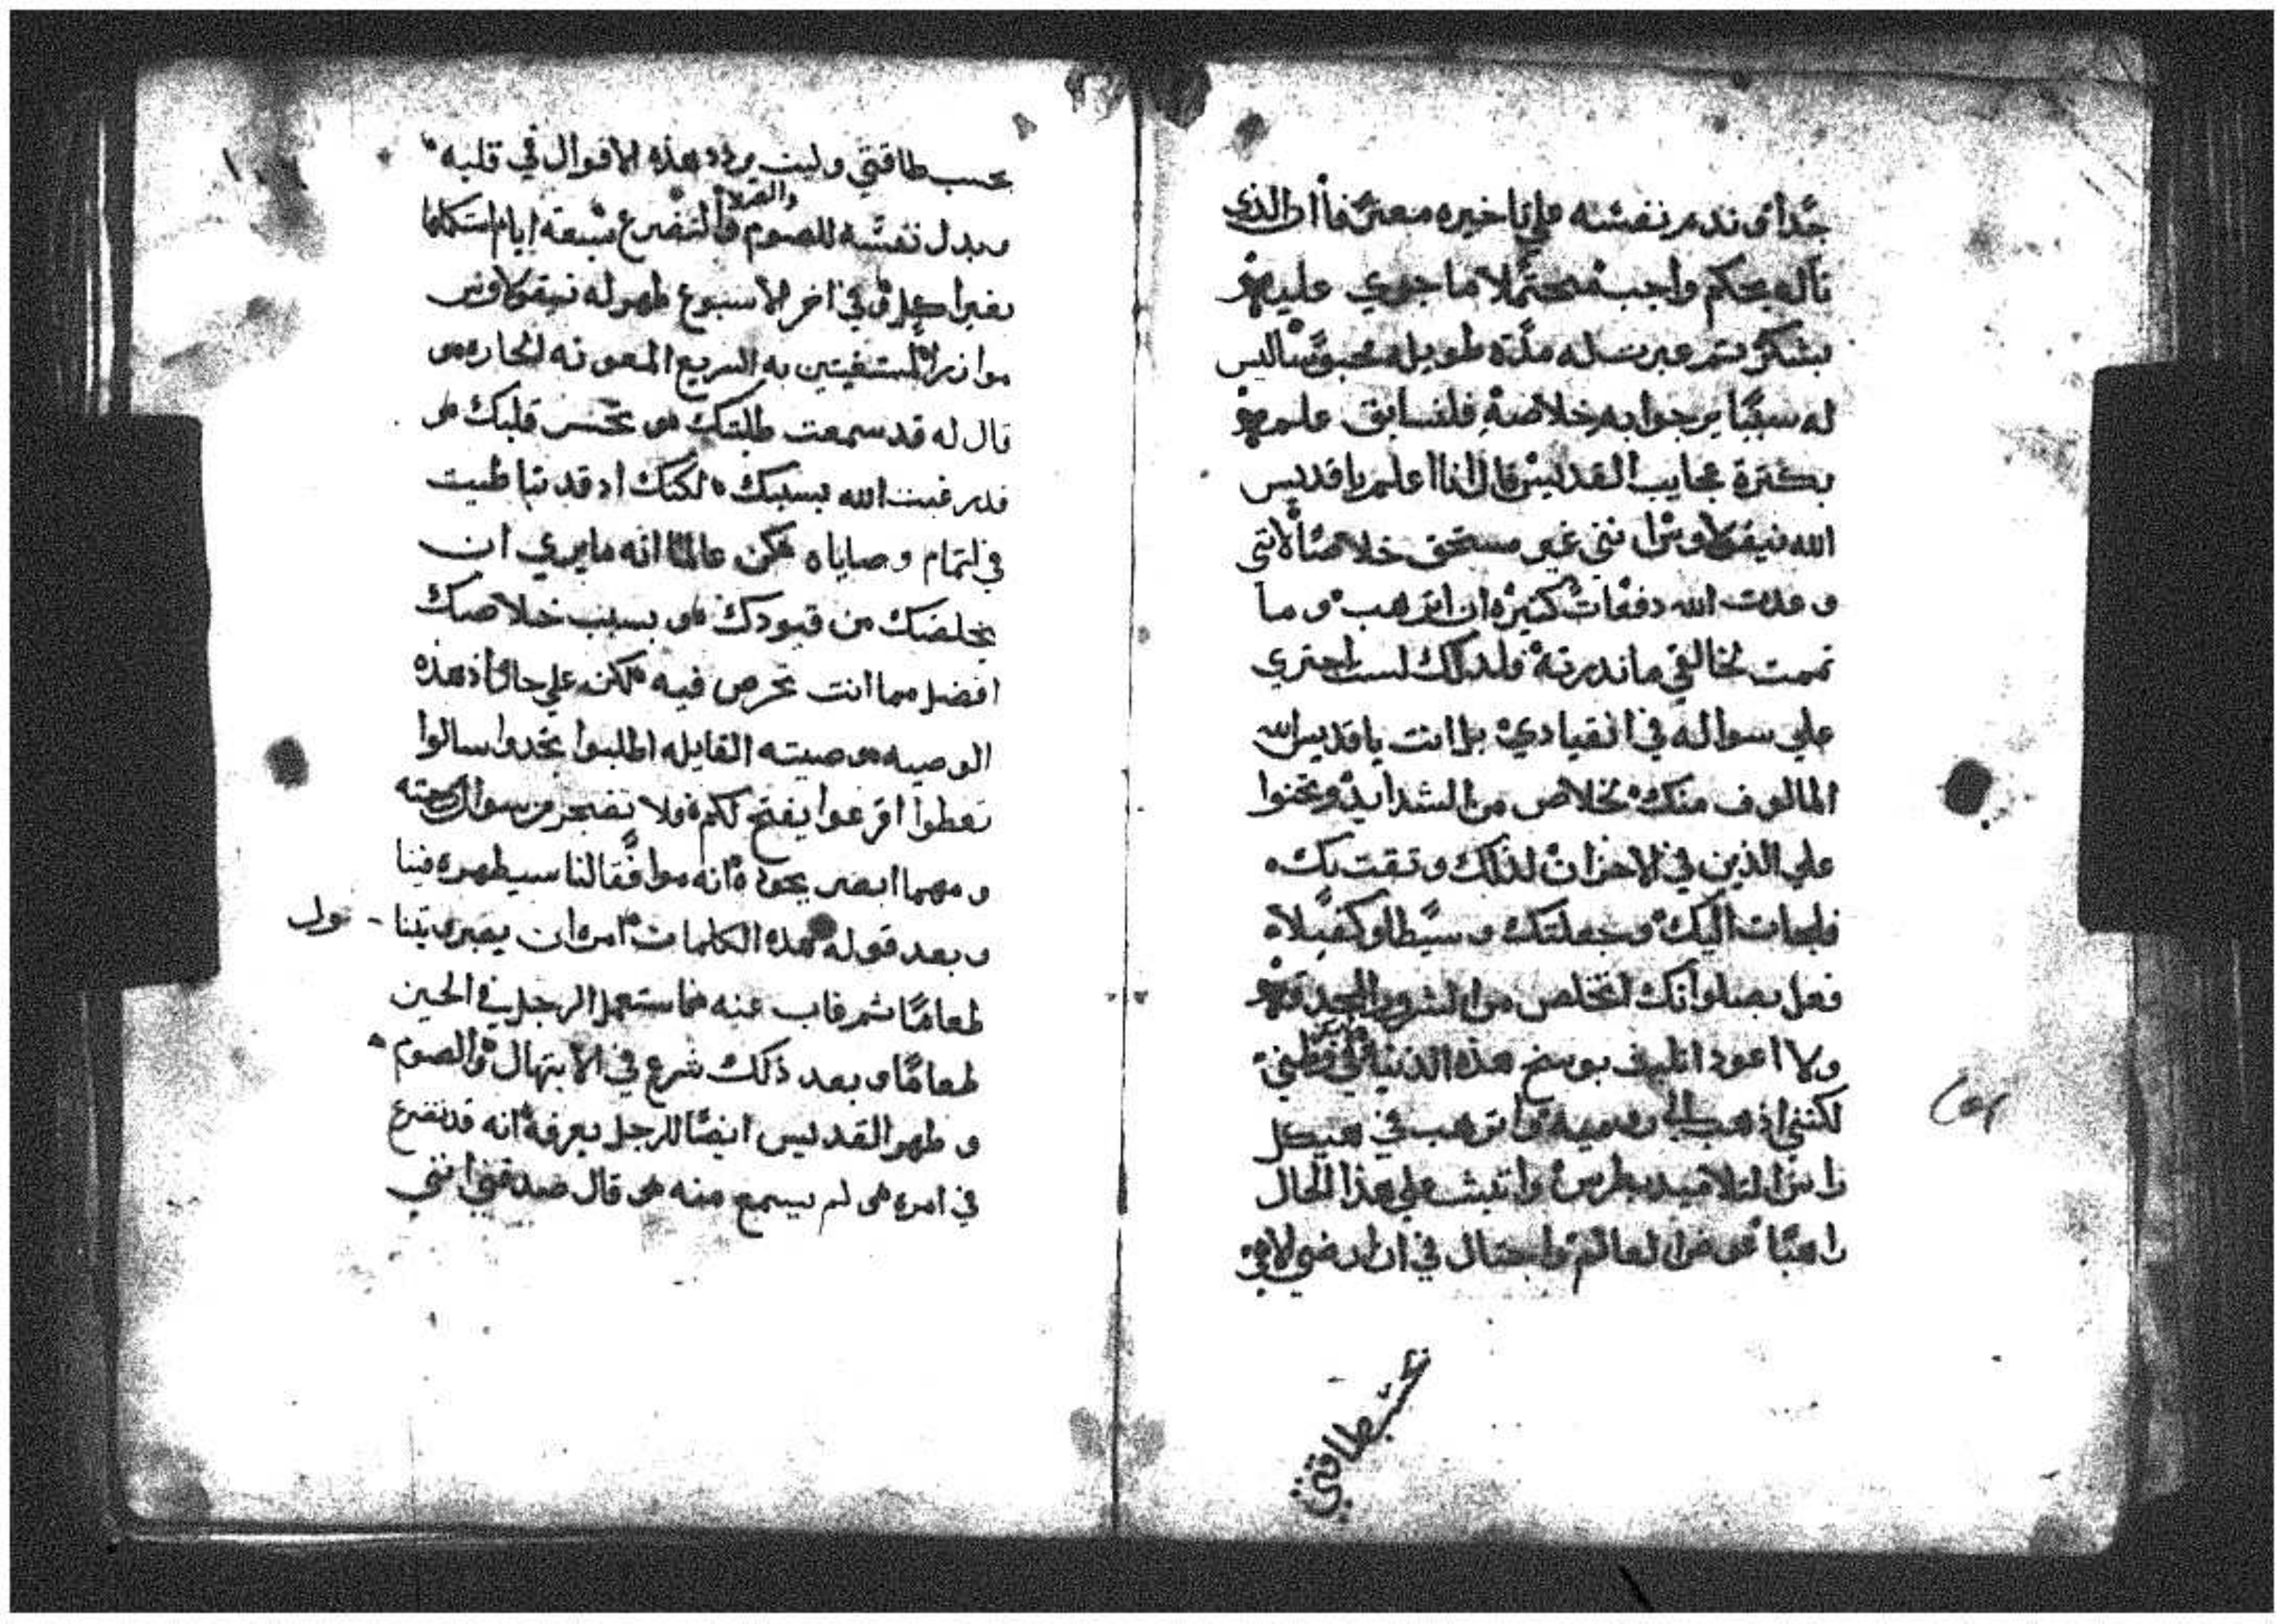 جدا وندم نفسه علي تاخيره معترفا ان الذي
ناله بحكم واجب محتملا ما جري عليه
بشكر ثم عبرت له مدة طويله محبوسا ليس
له سببا يرجوا به خلاصه فلسابق علمه
بكثرة عجايب القديس قال انا اعلم يا قديس
الله نيقولاوس انني غير مستحق خلاصا لانني
وعدت الله دفعات كثيره ان اترهب وما
تممت لخالقي ما ندرته ولدلك لست اجتري
علي سواله في انقيادي بل انت يا قديس الله
المالوف منك تخلاص من الشدايد وتحنوا
علي الذين في الاحزان لذلك وتقت بك
فلجات اليك وجعلتك وسيطا وكفيلا
فعل بصلواتك اتخلص من الشرور
ولا اعود اتليف بوسخ هذه الدنيا
لكنني اذهب الي روميه واترهب في هيكل
راس التلاميد بطرس واتبث علي هذا الحال
راهبا عوض العالم واجتال في ان ارضي الاهي
بحسب طاقتي
بحسب طاقتي ولبت يردد هذه الاقوال في قلبه
وبدل نفسه للصوم والصلاه والتضرع سبعة ايام استكملها
بغير اكل وفي اخر الاسبوع ظهر له نيقولاوس
موازر المستغيتين به السريع المعونه الحاره و
قال له قد سمعت طلبتك و تحسر قلبك و
قد رغبت الله بسببك لكنك اد قد تباطيت
في اتمام وصاياه لكن عالما انه ما يري ان
يخلصك من قيودك و بسبب خلاصك
افضل مما انت تحرص فيه لكن علي حال اذ هذه
الوصيه وصيته القايله اطلبوا تجدوا سالوا
تعطوا اقرعوا يفتح لكم ولا تضجر من سوال رحمته
ومهما ابصر بجوده انه موافقا لنا سيظهره فينا
وبعد قوله هذه الكلمات امر ان يصير
طعاما ثم غاب عنه فاستعمل الرجل في الحين
طعاما وبعد ذلك شرع في الابتهال والصوم
وظهر القديس ايضا للرجل يعرفه انه قد تضرع
في امره و لم يسمع منه و قال صدقني انني